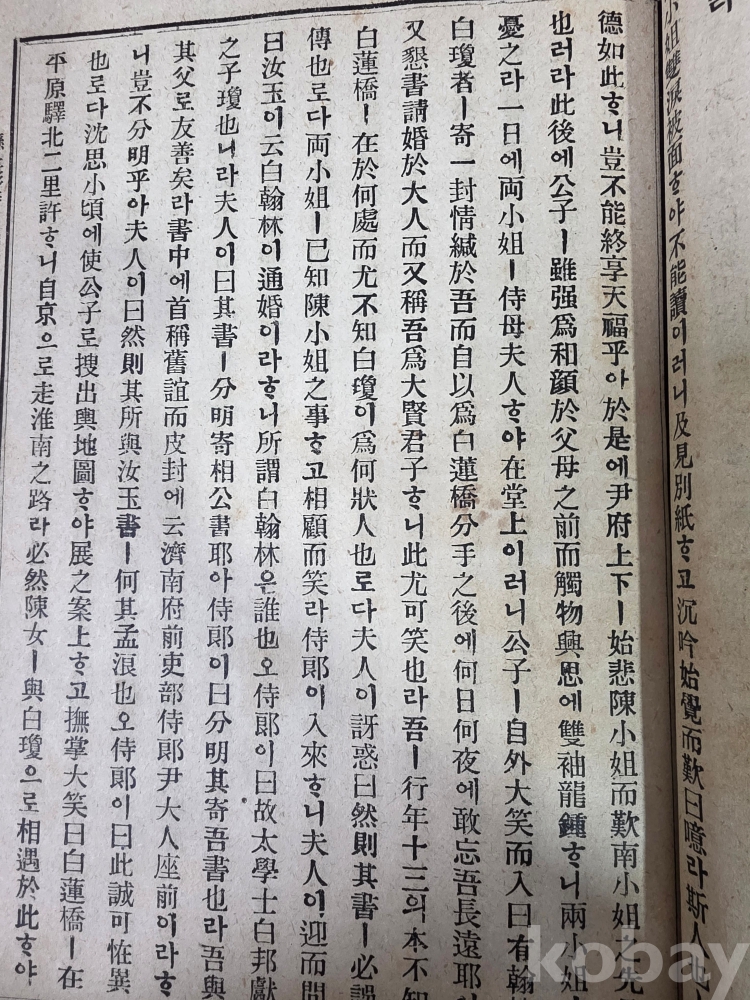 小姐雙淚被面ᄒᆞ야不能讀이러니及見別紙ᄒᆞ고沉吟始覺而歎曰噫라斯人
德如此ᄒᆞ니豈不能終享天福乎아於是에尹府上下ㅣ始悲陳小姐而歎南小姐之先
也러라此後에公子ㅣ雖强爲和顏於父母之前而觸物興思에雙袖龍鍾ᄒᆞ니兩小姐
憂之라一日에両小姐ㅣ侍母夫人ᄒᆞ야在堂上이러니公子ㅣ自外大笑而入曰有翰
白瓊者ㅣ寄一封情緘於吾而自以爲白蓮橋分手之後에何日何夜에敢忘吾長遠耶
又懇書請婚於大人而又稱吾爲大賢君子ᄒᆞ니此尤可笑也라吾ㅣ行年十三의本不知
白蓮橋ㅣ在於何處而尤不知白瓊이爲何狀人也로다夫人이訝惑曰然則其書ㅣ必誤
傳也로다両小姐ㅣ已知陳小姐之事ᄒᆞ고相顧而笑라侍郞이入來ᄒᆞ니夫人이迎而問
曰汝玉이云白翰林이通婚이라ᄒᆞ니所謂白翰林은誰也오侍郞이曰故太學士白邦獻
之子瓊也니라夫人이曰其書ㅣ分明寄相公書耶아侍郞이曰分明其寄吾書也라吾與
其父로友善矣라書中에首稱舊誼而皮封에云濟南府前吏部侍郞尹大人座前이라ᄒᆞ
니豈不分明乎아夫人이曰然則其所與汝玉書ㅣ何其孟浪也오侍郞이曰此誠可恠異
也로다沈思小頃에使公子로搜出輿地圖ᄒᆞ야展之案上ᄒᆞ고撫掌大笑曰白蓮橋ㅣ在
平原驛北二里許ᄒᆞ니自京으로走淮南之路라必然陳女ㅣ與白瓊으로相遇於此ᄒᆞ야
kobay